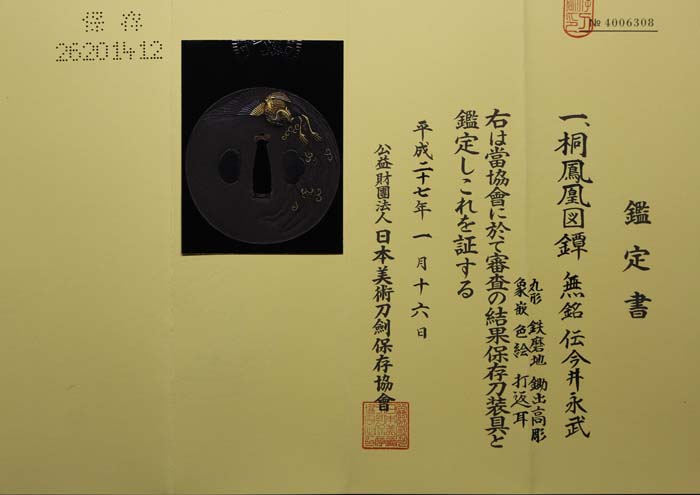 鑑定書
一、桐鳳凰図鐔 無銘 伝今井永武
丸形 鉄磨地 鋤出高彫
象嵌 色絵 打返耳
右は當協會に於て審査の結果保存刀装具と
鑑定しこれを証する
平成二十七年一月十六日
公益財團法人 日本美術刀劍保存協會
№ 4006308
保存
26201412